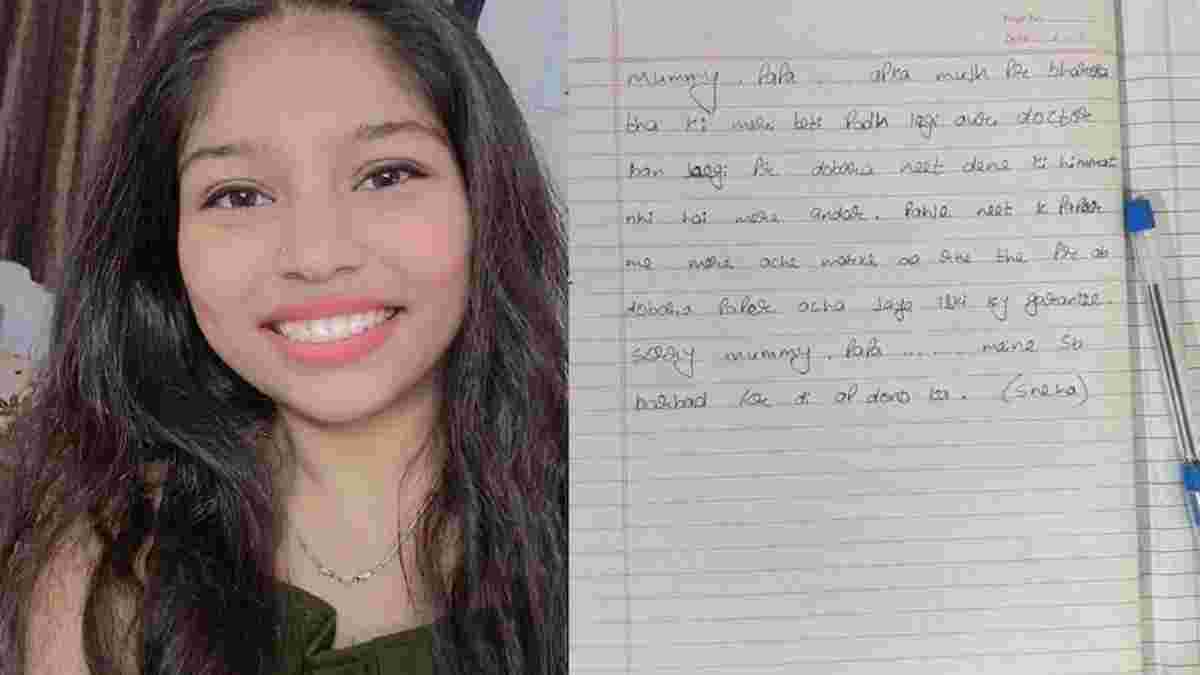 Mummy. Papa... apka mujh pr bharosa
tha ki meri beti Padh legi aur doctor
ban jaegi pr dobara neet dene ki himmat
nhi hai mere andar. Pahle neet k Paper
me mere ache marks aa rhe the Pr ab
dobara Paper acha jaye iski ky garantee.
sorry mummy. Papa ....... mene sb
barbad kr di ap dono ka. (Sneha)